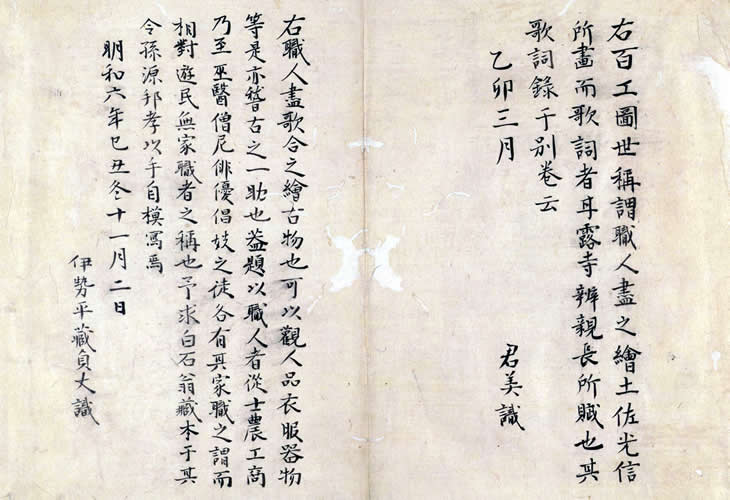 右百工圖世稱謂職人盡之繪土佐光信
所畫而歌詞者耳露寺辨親長所賦也其
歌詞錄于別卷云
乙卯三月
君美識
右職人盡歌合之繪古物也可以觀人品衣服器物
等是亦稽古之一助也葢題以職人者從士農工商
乃至巫醫僧尼俳優倡妓之徒各有其家職之謂而
相對遊民無家職者之稱也予求白石翁藏本于其
令孫源邦孝以手自模寫焉
明和六年己丑冬十一月二日
伊勢平藏貞丈識